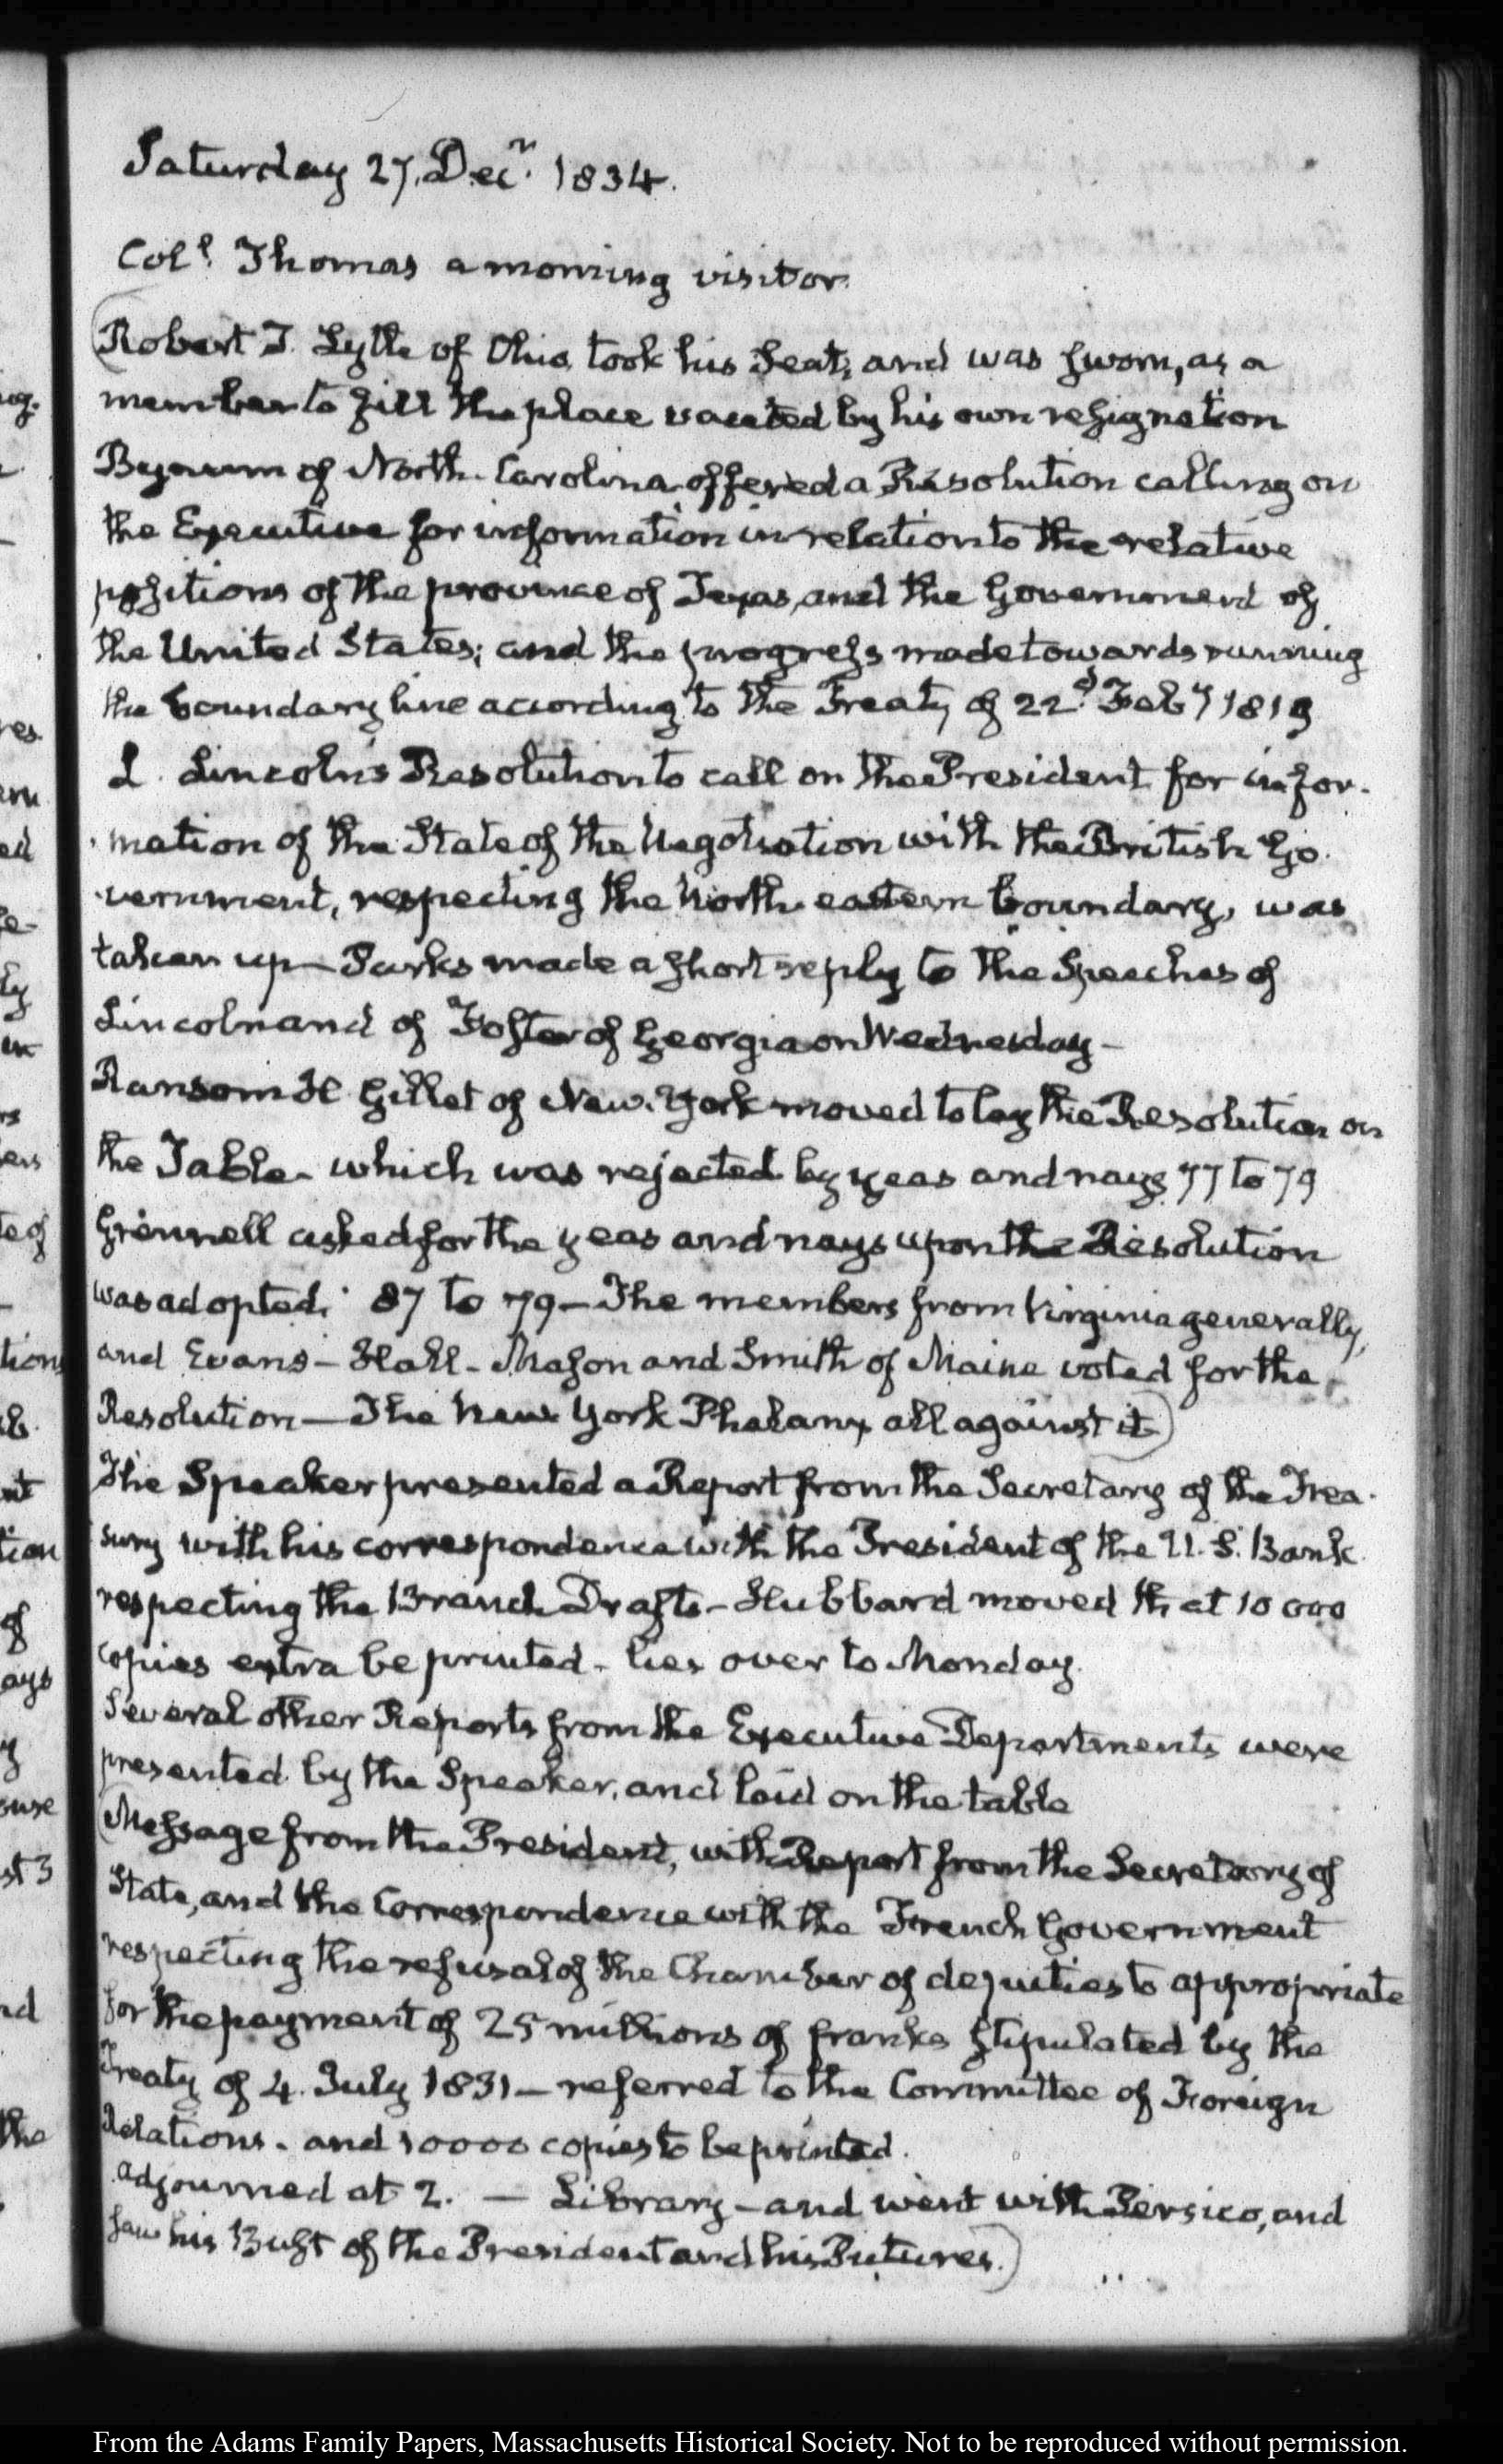 Saturday 27. Decr. 1834.
Coll. Thomas a morning visitor.
Robert T. Lytle of Ohio, took his Seat, and was sworn, as a
member to fill the place vacated by his own resignation
Bynum of North-Carolina offered a Resolution calling on
the Executive for information in relation to the relative
positions of the province of Texas, and the Government of
the United States; and the progress made towards running
the boundary line according to the Treaty of 22d. Feby 1819
L. Lincoln's Resolution to call on the President for infor-
mation of the State of the Negotiation with the British Go-
vernment, respecting the North-eastern boundary, was
taken up — Parks made a short reply to the Speeches of
Lincoln and of Foster of Georgia on Wednesday —
Ransom H. Gillet of New-York moved to lay the Resolution on
the Table — which was rejected by yeas and nays 77 to 79
Grennell asked for the yeas and nays upon the Resolution
was adopted. 87 to 79 — The members from Virginia generally,
and Evans — Hall — Mason and Smith of Maine voted for the
Resolution — The New York Phalanx all against it
The Speaker presented a Report from the Secretary of the Trea-
sury with his correspondence with the President of the U.S. Bank
respecting the Branch Drafts — Hubbard moved that 10 000
copies extra be printed — lies over to Monday.
Several other Reports from the Executive Departments were
presented by the Speaker, and laid on the table
Message from the President, with Report from the Secretary of
State, and the Correspondence with the French Government
respecting the refusal of the Chamber of deputies to appropriate
for the payment of 25 millions of franks stipulated by the
Treaty of 4. July 1831 — referred to the Committee of Foreign
Relations. and 10000 copies to be printed.
Adjourned at 2. — Library — and went with Persico, and
saw his Bust of the President and his Pictures.
From the Adams Family Papers, Massachusetts Historical Society. Not to be reproduced without permission.